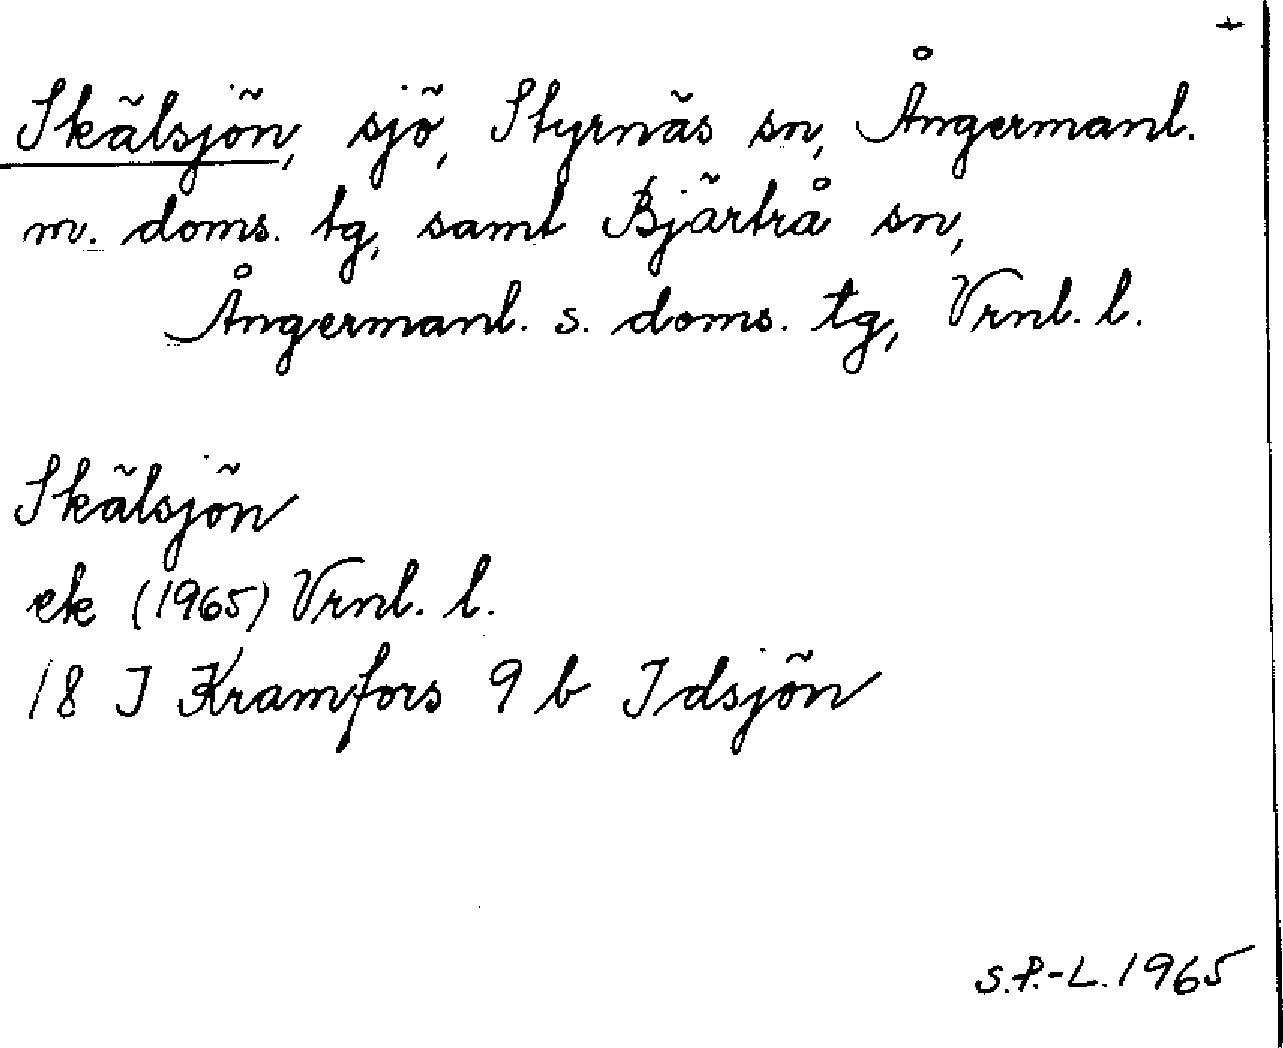 +
Skälsjön, sjö, Styrnäs sn, Ångermanl.
m. doms. tg, samt Bjärtrå sn,
Ångermanl. s. doms. tg, Vrnl. l.
Skälsjön
ek (1965) Vrnl. l.
18 J Kramfors 9 b Idsjön
S.P.-L. 1965